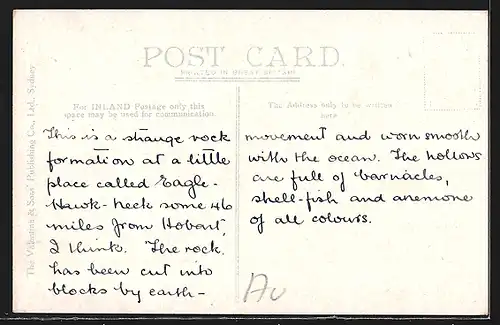 POST CARD.
PRINTED IN GREAT BRITAIN
For INLAND Postage only this
space may be used for communication.
The Address only to be written
here
The Valentine & Sons' Publishing Co., Ltd., Sydney
This is a strange rock
formation at a little
place called Eagle-
Hawk-neck some 46
miles from Hobart,
I think. The rock
has been cut into
blocks by earth-
movement and worn smooth
with the ocean. The hollows
are full of barnacles,
shell-fish and anemone
of all colours.
Au